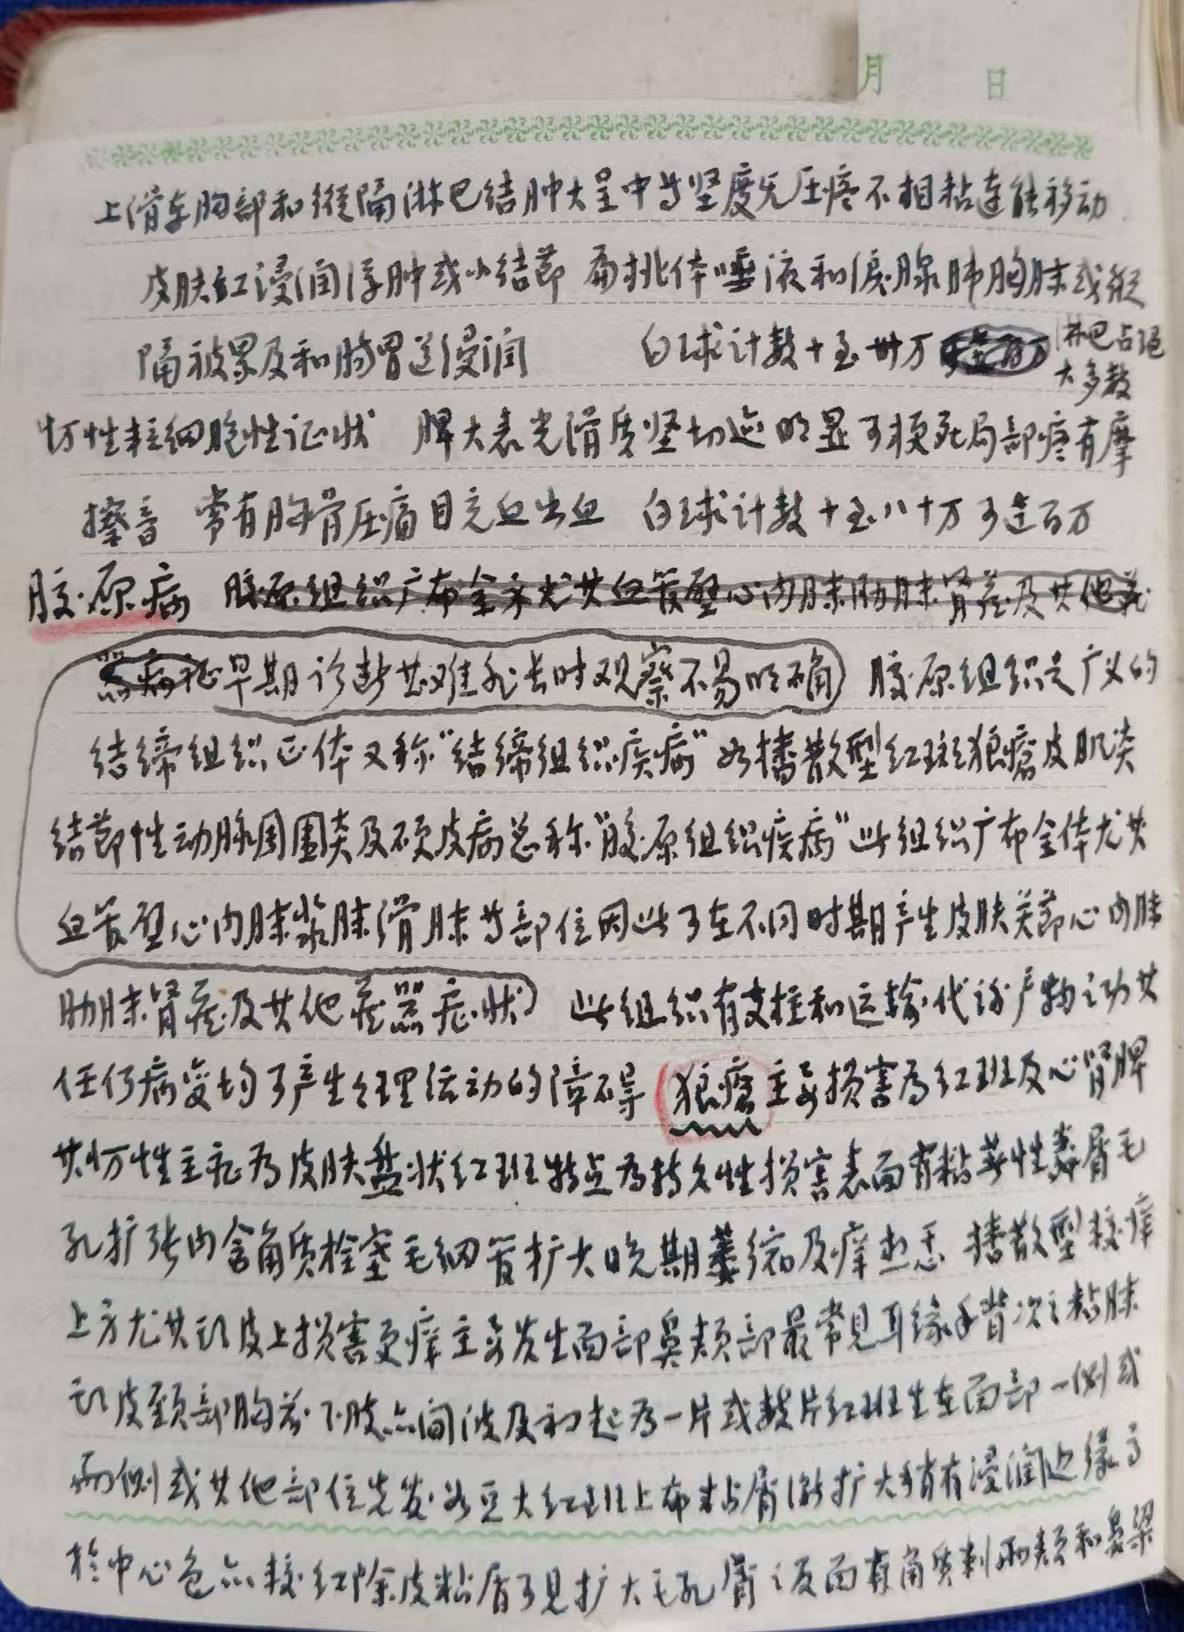 月 日
上滑车胸部和纵隔淋巴结肿大呈中等坚度无压疼不相粘连能移动
皮肤红浸润浮肿或小结节 扁桃体唾液和泪腺肺胸膜或纵
隔被累及和肠胃道浸润 白球计数十至卅万 淋巴占绝
大多数
慢性粒细胞性证状 脾大表光滑质坚切迹明显可梗死局部疼有摩
擦音 常有胸骨压痛目充血出血 白球计数十至八十万可达百万
胶原病 胶原组织广布全身尤其血管壁心内膜肋膜肾脏及其他脏
器病症早期诊断甚难非长时观察不易明确 胶原组织是广义的
结缔组织正体又称“结缔组织疾病”如播散型红斑狼疮皮肌炎
结节性动脉周围炎及硬皮病总称“胶原组织疾病”此组织广布全体尤其
血管壁心内膜浆膜滑膜等部位因此可在不同时期产生皮肤关节心内膜
肋膜肾脏及其他脏器症状 此组织有支柱和运输代谢产物之功其
任何病变均可产生经理活动的障碍 狼疮主要损害为红斑及心肾脾
其慢性主症为皮肤盘状红斑特点为持久性损害表面有粘着性鳞屑毛
孔扩张内含角质栓塞毛细管扩大晚期萎缩及痒 播散型较痒
上方尤其头皮上损害更痒主要发生面部鼻颊部最常见耳缘手背次之粘膜
头皮颈部胸前下肢亦间波及初起为一片或数片红斑生在面部一侧或
两侧或其他部位先发如豆大红斑上布粘屑渐扩大稍有浸润边缘高
于中心色亦较红除皮粘屑可见扩大毛孔屑之反面有角质刺两颊和鼻梁